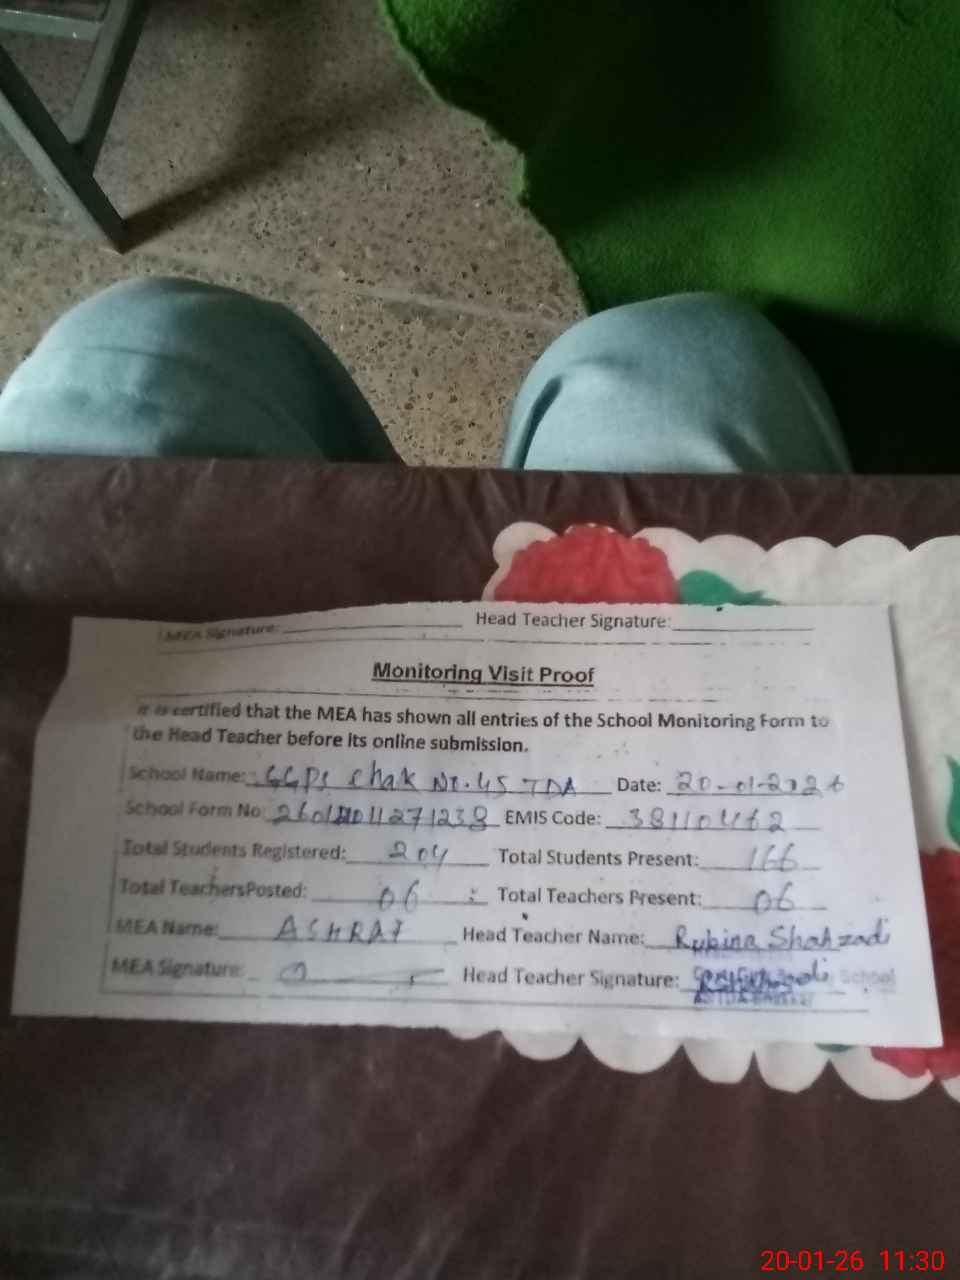 MEA Signature: Head Teacher Signature:
Monitoring Visit Proof
It is certified that the MEA has shown all entries of the School Monitoring Form to
the Head Teacher before its online submission.
School Name: GGPS Chak No. 45 TDA Date: 20-01-2026
School Form No: EMIS Code: 38110462
Total Students Registered: 204 Total Students Present: 166
Total TeachersPosted: 06 Total Teachers Present: 06
MEA Name: ASHRAF Head Teacher Name: Rubina Shahzadi
MEA Signature: Head Teacher Signature: School
20-01-26 11:30